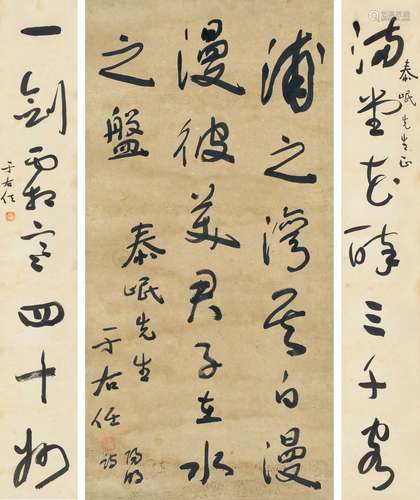 滿堂花醉三千客
泰岷先生正
浦之灣其白漫
漫彼美君子在水
之盤
泰岷先生
陽明
詩
于右任
一劍霜寒四十州
于右任